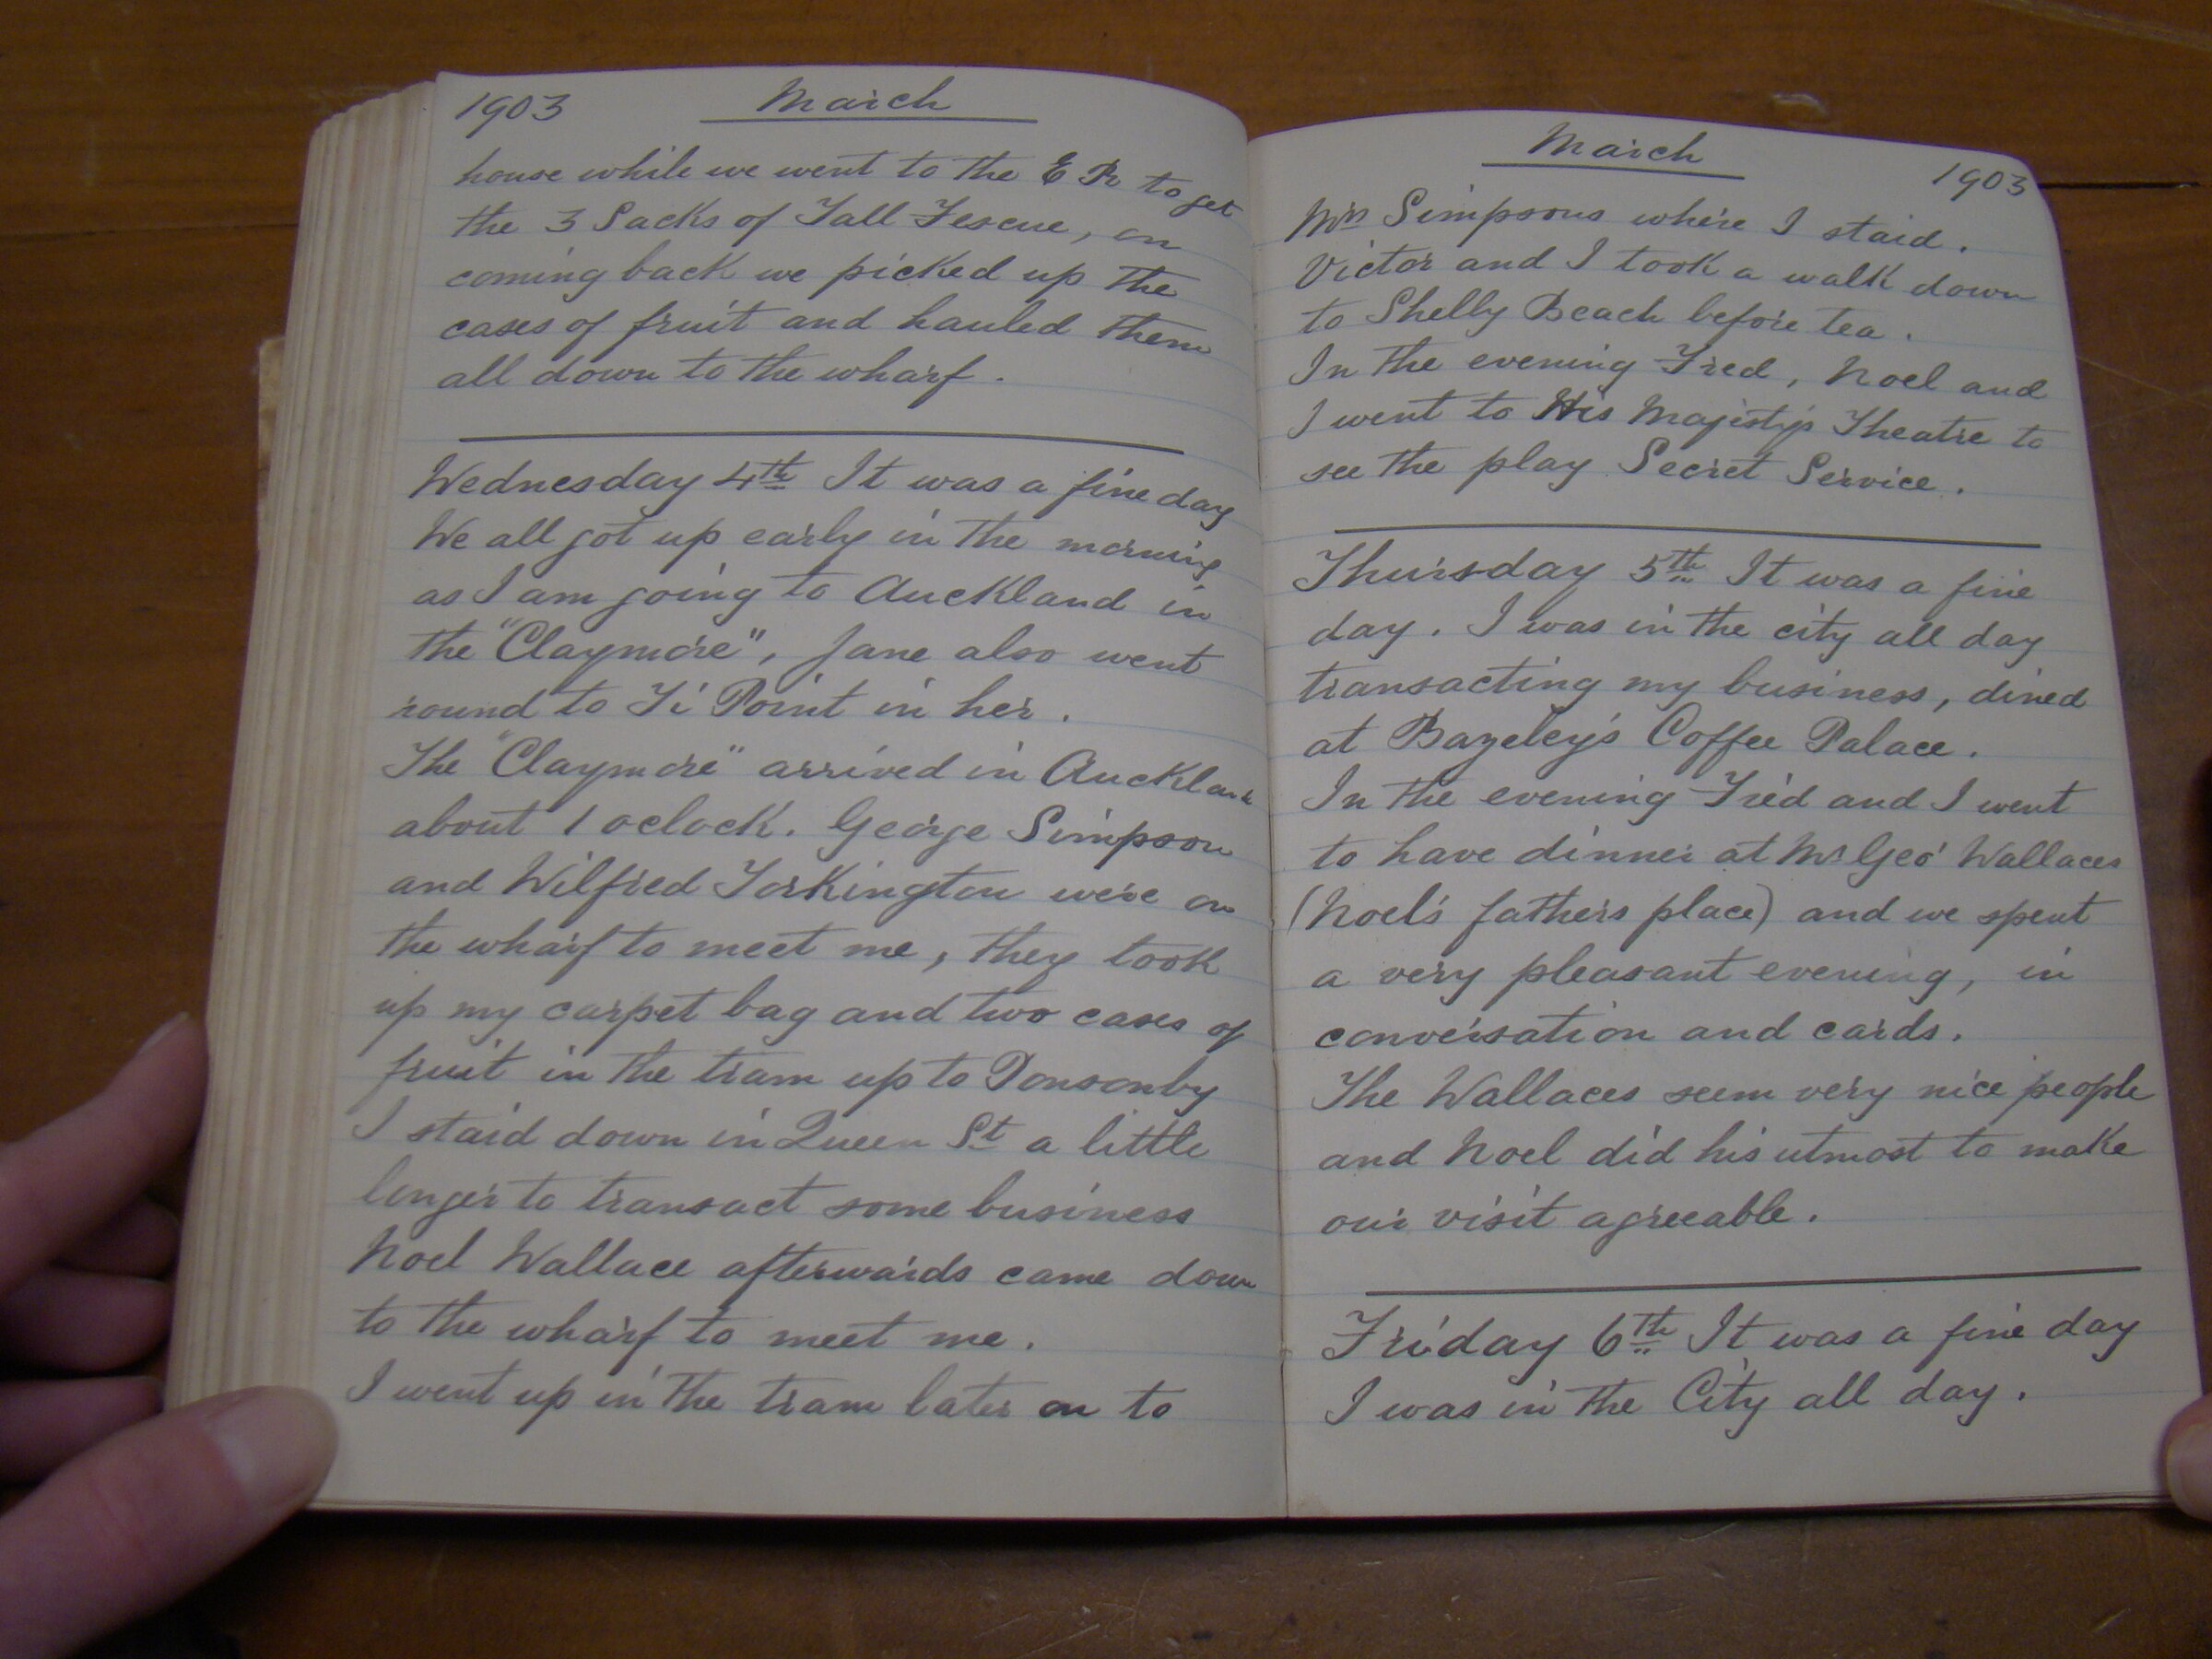 1903 March
house while we went to the E R to get
the 3 Sacks of Tall Fescue, on
coming back we picked up the
cases of fruit and hauled them
all down to the wharf.
Wednesday 4th It was a fine day
We all got up early in the morning
as I am going to Auckland in
the "Claymore", Jane also went
round to Ti Point in her.
The "Claymore" arrived in Auckland
about 1 oclock. George Simpson
and Wilfred Torkington were on
the wharf to meet me, they took
up my carpet bag and two cases of
fruit in the tram up to Ponsonby
I staid down in Queen St a little
longer to transact some business
Noel Wallace afterwards came down
to the wharf to meet me.
I went up in the tram later on to
March 1903
Mrs Simpsons where I staid.
Victor and I took a walk down
to Shelly Beach before tea.
In the evening Fred, Noel and
I went to His Majestys Theatre to
see the play Secret Service.
Thursday 5th It was a fine
day. I was in the city all day
transacting my business, dined
at Bazeley's Coffee Palace.
In the evening Fred and I went
to have dinner at Mr Geo Wallaces
(Noel's fathers place) and we spent
a very pleasant evening, in
conversation and cards.
The Wallaces seem very nice people
and Noel did his utmost to make
our visit agreeable.
Friday 6th It was a fine day
I was in the City all day.